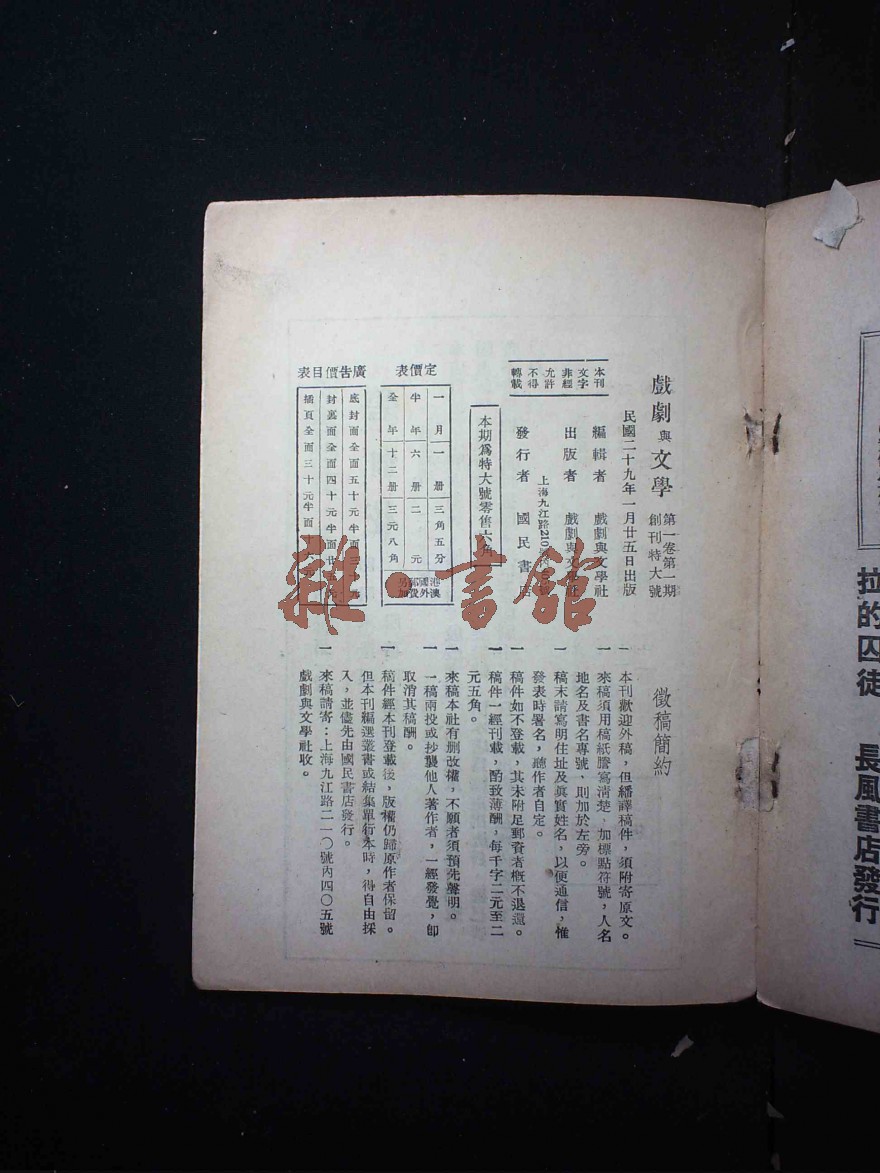 戲劇與文學
第一卷第一期
創刊特大號
民國二十九年一月廿五日出版
編輯者 戲劇與文學社
出版者 戲劇與文學社
上海九江路210號
發行者 國民書店
本刊
文字
非經
允許
不得
轉載
本期爲特大號零售六角
定價表
一月 一册 三角五分
半年 六册 二元
全年 十二册 三元八角
港澳
國外
郵費
另加
廣告價目表
底封面全面五十元半面三
封裏面全面四十元半面廿五元
插頁全面三十元半面十六元
徵稿簡約
一 本刊歡迎外稿，但繙譯稿件，須附寄原文。
一 來稿須用稿紙謄寫清楚，加標點符號，人名
地名及書名專號，則加於左旁。
一 稿末請寫明住址及眞實姓名，以便通信，惟
發表時署名，聽作者自定。
一 稿件如不登載，其未附足郵資者槪不退還。
一 稿件一經刊載，酌致薄酬，每千字二元至二
元五角。
一 來稿本社有删改權，不願者須預先聲明。
一 一稿兩投或抄襲他人著作者，一經發覺，卽
取消其稿酬。
一 稿件經本刊登載後，版權仍歸原作者保留。
但本刊編選叢書或結集單行本時，得自由採
入，並儘先由國民書店發行。
一 來稿請寄：上海九江路二一〇號內四〇五號
戲劇與文學社收。
拉的囚徒 長風書店發行
雜·書館